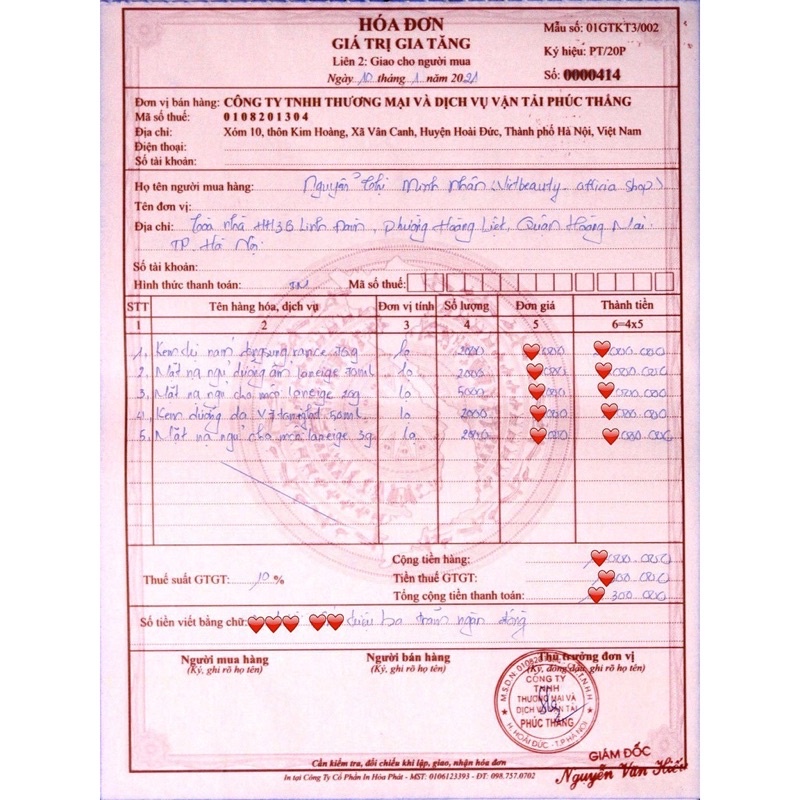 HÓA ĐƠN
GIÁ TRỊ GIA TĂNG
Liên 2: Giao cho người mua
Ngày 10 tháng 1 năm 2021
Mẫu số: 01GTKT3/002
Ký hiệu: PT/20P
Số: 0000414
Đơn vị bán hàng: CÔNG TY TNHH THƯƠNG MẠI VÀ DỊCH VỤ VẬN TẢI PHÚC THẮNG
Mã số thuế: 0108201304
Địa chỉ: Xóm 10, thôn Kim Hoàng, Xã Vân Canh, Huyện Hoài Đức, Thành phố Hà Nội, Việt Nam
Điện thoại:
Số tài khoản:
Họ tên người mua hàng: Nguyễn Thị Minh Nhân (Vietbeauty officia shop)
Tên đơn vị:
Địa chỉ: Tòa nhà HH3B Linh Đàm, Phường Hoàng Liệt, Quận Hoàng Mai
TP. Hà Nội
Số tài khoản:
Hình thức thanh toán: TM Mã số thuế:
STT Tên hàng hóa, dịch vụ Đơn vị tính Số lượng Đơn giá Thành tiền
1 2 3 4 5 6=4x5
1. Kem dư nám rance lọ 2000 000 000.000
2. Mặt nạ ngủ dưỡng ẩm laneige 70ml lọ 2000 000 000.000
3. Mặt nạ ngủ cho môi laneige 20g lọ 5000 000 000.000
4. Kem dưỡng da V7 50ml lọ 2000 000 000.000
5. Mặt nạ ngủ cho môi laneige 3g lọ 2000 000 000.000
Cộng tiền hàng: 000.000
Thuế suất GTGT: 10 % Tiền thuế GTGT: 000.000
Tổng cộng tiền thanh toán: 300.000
Số tiền viết bằng chữ: triệu ba trăm ngàn đồng
Người mua hàng Người bán hàng Thủ trưởng đơn vị
(Ký, ghi rõ họ tên) (Ký, ghi rõ họ tên) (Ký, đóng dấu, ghi rõ họ tên)
CÔNG TY
TNHH
THƯƠNG MẠI VÀ
DỊCH VỤ VẬN TẢI
PHÚC THẮNG
H. HOÀI ĐỨC - T.P HÀ NỘI
GIÁM ĐỐC
Nguyễn Văn Hiếu
Cần kiểm tra, đối chiếu khi lập, giao, nhận hóa đơn
In tại Công Ty Cổ Phần In Hòa Phát - MST: 0106123393 - ĐT: 098.757.0702